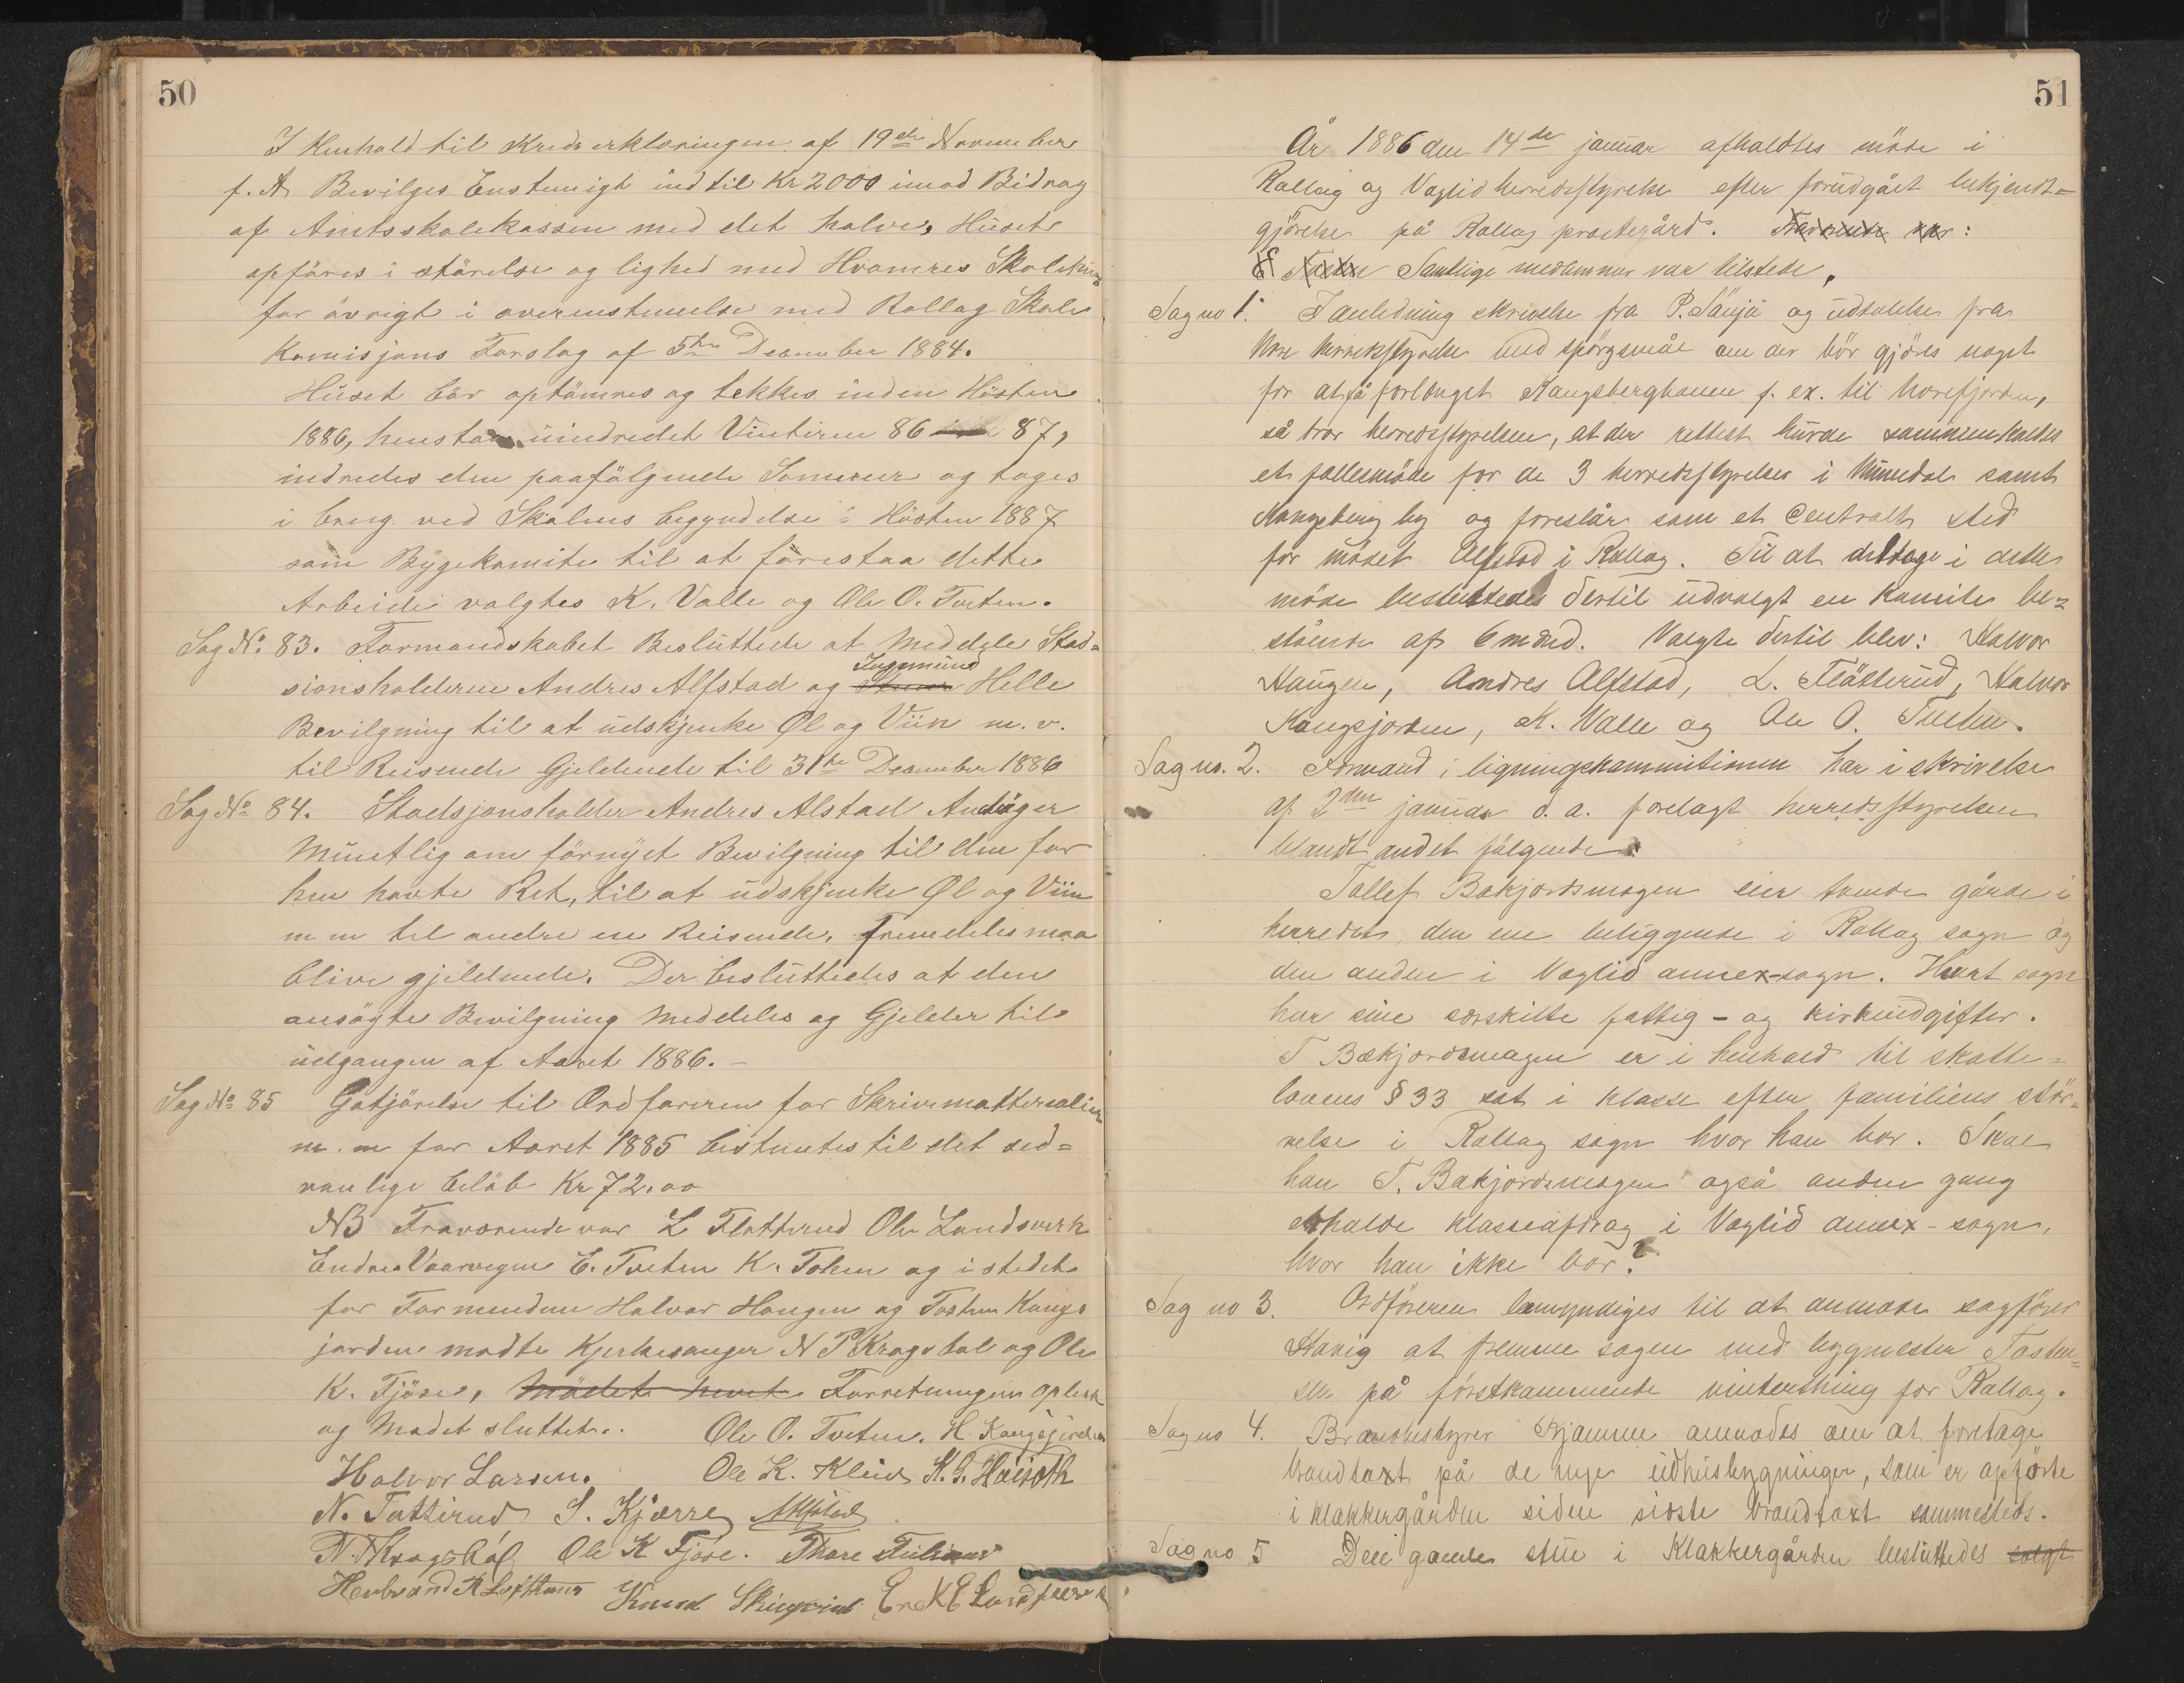 50
I Henhold til Kredserklæringen af 19de November
f. A. Bevilges Enstemigt indtil Kr 2000 imod Bidrag
af Amtsskolekassen med det halve, Huset
opføres i størelse og lighed med Hvamres
for øvrigt i overenstemelse med Rollag Skole
Komisjons Forslag af 5te December 1884.
Huset bør optømres og tekkes inden Høsten
1886, henstaa uindredet Vinteren 86 87,
indredes den paafølgende Sommer og tages
i brug ved Skolens begyndelse i Høsten 1887
som Bygekomite til at forestaa dette
Arbeide valgtes K. Valle og Ole O. Tveten.
Sag No. 83. Formandskabet Besluttede at Meddele Stad=
sionsholderne Andres Alfstad og Ingemund Helle
Bevilgning til at udskjenke Øl og Viin m. v.
til Reisende Gjeldende til 31te December 1886
Sag No 84. Stadsjonsholder Andres Alstad Andøger
Muntlig om fornyet Bevilgning til den for
hen havte Ret, til at udskjenke Øl og Viin
m m til andre en Reisende, fremdeles maa
blive gjeldende. Der besluttedes at den
ansøgte Bevilgning Meddeles og Gjelder til
udgangen af Aaret 1886. –
Sag No 85 Gotjørelse til Ordføreren for Skrivematterealier
m. m for Aaret 1885 bestemtes til det sed=
vanlige beløb Kr 72.00
NB Fraværende var L Flotterud Ole Landsverk
Endre Vaarvegen E. Tveten K. Tohen og i stedet
for Formendene Halvor Haugen og Tosten Kongs
jorden mødte Kjerkesanger N P Kragsbal og Ole
K. Fjøse, Mødet hevet Forretningen oplest
og Mødet sluttet..
Ole O. Tveten. H. Kongsjorden
Halvor Larsen. Ole K. Kleiv K. G. Høiseth
N. Tutterud S. Kjærre AAlfstad
N. P. Kragsbøl Ole K Fjøse. Thore
Herbrand K Lofthuus Knud
51
År 1886 den 14de januar afholdtes møde i
Rollag og Væglid herredsstyrelse efter forudgået bekjendt=
gjørelse på Rollag præstegård. Fraværende var:
Samtlige medlemmer var tilstede.
Sag no 1. I anledning skrivelse fra P. Sønjü og udtalelse fra
Nore herredsstyrelse med spørgsmål om der bør gjøres noget
for at få forlænget Kongsbergbanen f. ex. til Norefjorden,
så tror herredsstyrelsen, at der rettest burde sammenkaldes
et fællesmøde for de 3 herredsstyrelser i Numedal samt
Kongsberg by og foreslår som et Centralt sted
for mødet Alfstad i Rollag. Til at deltage i dette
møde besluttedes dertil udvalgt en Komite be=
stående af 6 mænd. Valgte dertil blev: Halvor
Haugen, Andres Alfstad, L. Flåtterud, Halvor
Kongsjorden, K. Valle og Ole O. Tveten.
Sag no. 2. Formand i ligningskommitionen har i skrivelse
af 2den januar d. a. forelagt herredsstyrelsen
blandt andet følgende:
Tollef Bakjordsmogen eier tvende gårde i
herredet, den ene beliggende i Rollag sogn og
den anden i Væglid annex-sogn. Hvert sogn
har sine særskilte fattig- og kirkeudgifter.
T Bækjordsmogen er i henhold til skatte=
lovens § 33 sat i klasse efter familiens stør=
relse i Rollag sogn hvor han bor. Skal
han T. Bakjordsmogen også anden gang
erholde klasseafdrag i Væglid annex-sogn,
hvor han ikke bor?
Sag no 3. Ordføreren bemyndiges til at anmode sagfører
Horrig at fremme sagen med bygmester Tosten=
sen på førstkommende vinterthing for Rollag.
Sag no 4. Brandbestyrer Bjamme anmodes om at foretage
brandtaxt på de nye udhusbygninger, som er opførte
i Klakkergården siden sidste brandtaxt sammesteds.
Sag no 5 Den gamle stue i Klakkergården besluttedes solgt